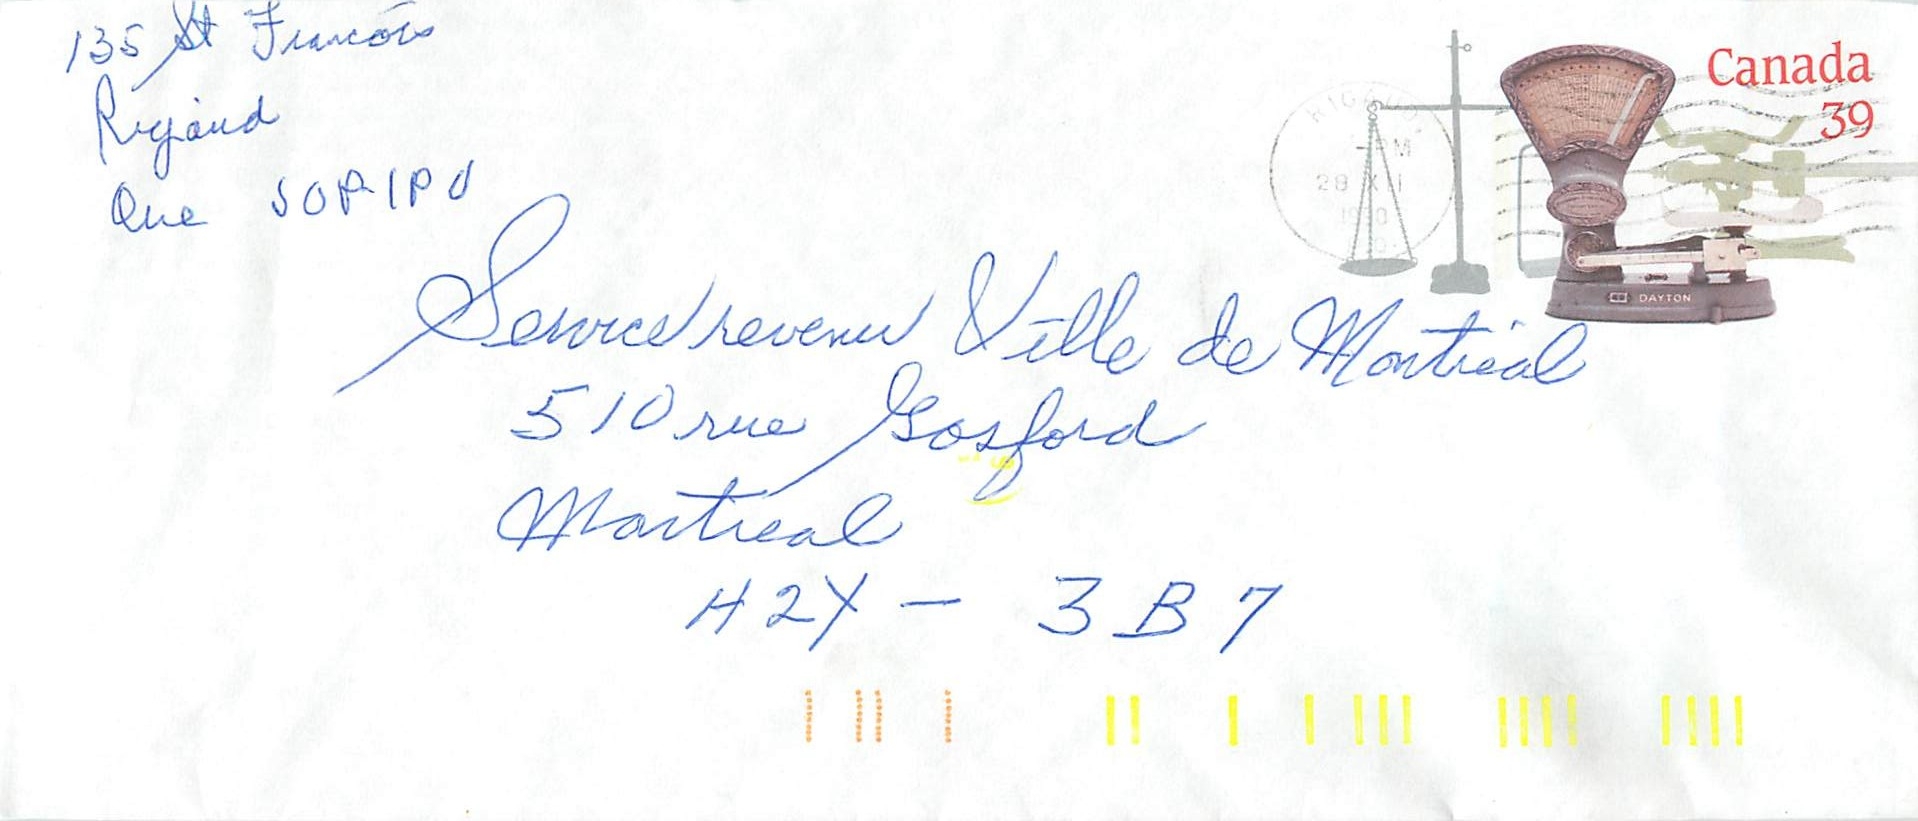 135 St Francois
Rigaud
Que J0P 1P0
Canada
39
RIGAUD
PM
28 XII
1990
DAYTON
Service revenu Ville de Montréal
510 rue Gosford
Montreal
H2Y - 3B7